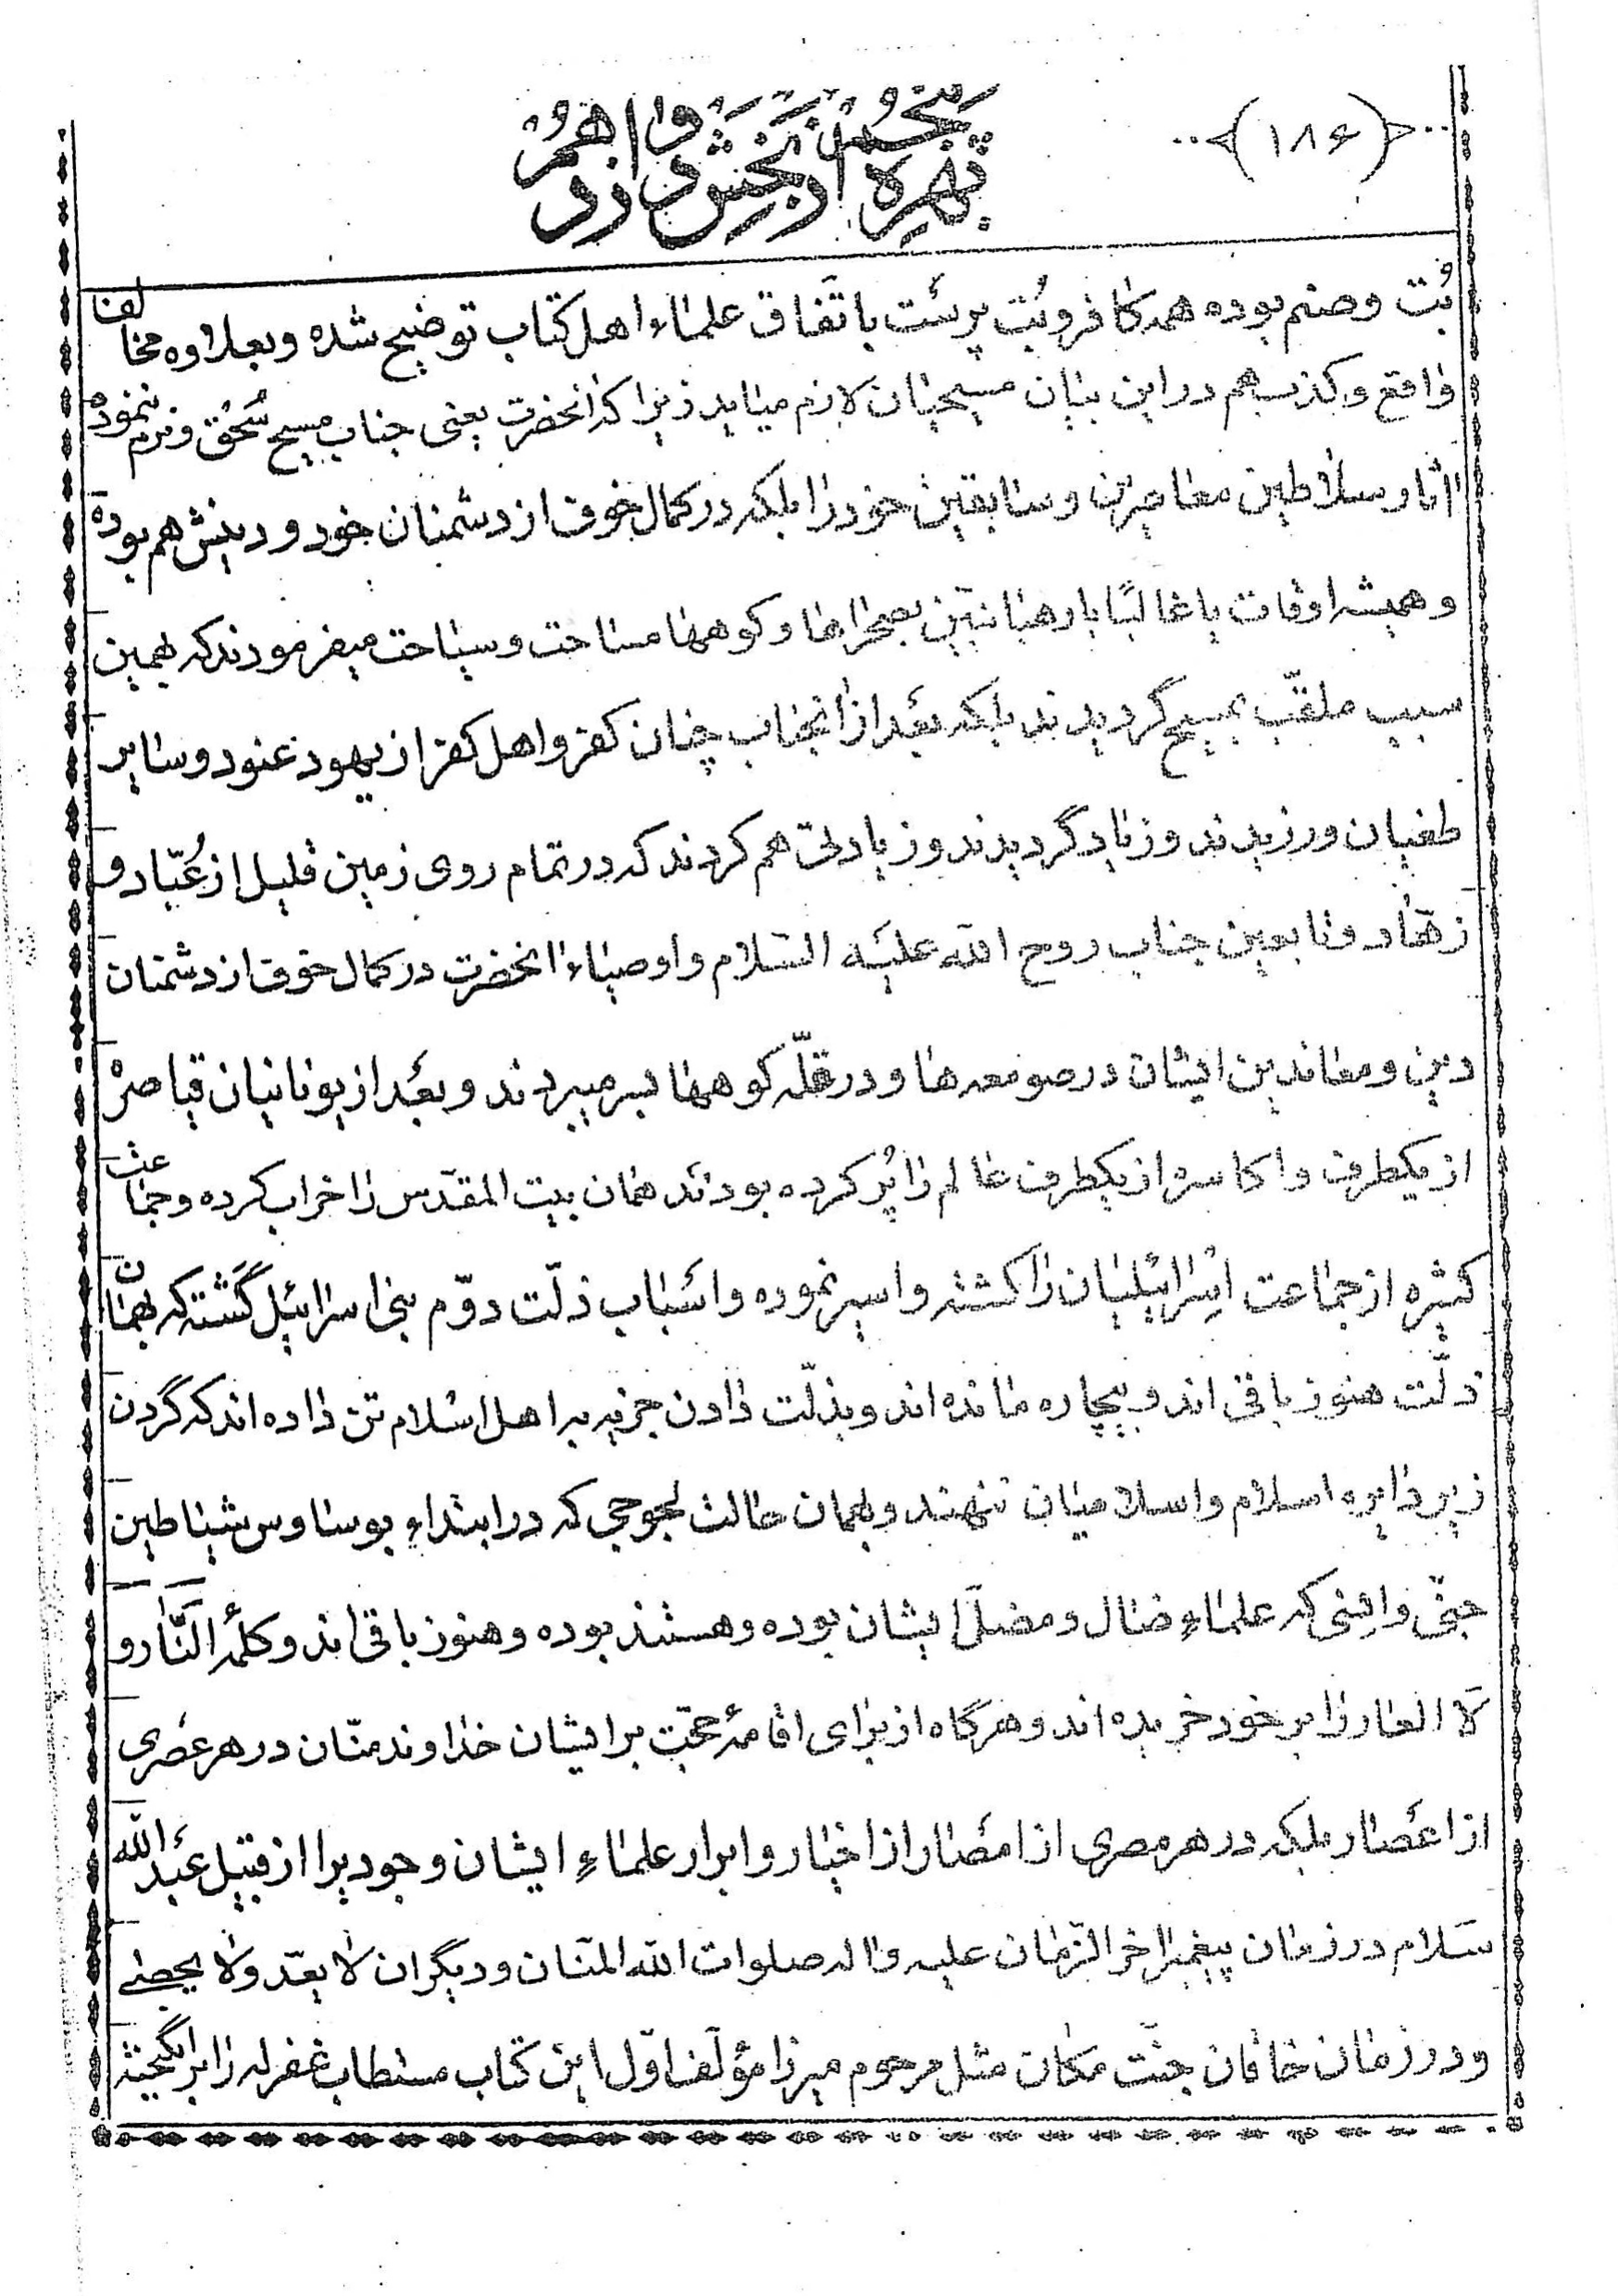 <(۱۸۶)>
بهره از بخش دوازدهم
بُت وصنم بوده همه کافر و بُت پرست باتّفاق علماء اهل کتاب توضیح شده و بعلاوه مخالف
واقع و کذب هم در این بیان مسیحیان لازم میاید زیرا که آنحضرت یعنی جناب مسیح سُحُق و نرم ننموده
اثار و سلاطین معاصرین و سابقین خود را بلکه در کمال خوف از دشمنان خود و دینش هم بوده
و همیشه اوقات یا غالبًا با رهبانیّین بصحراها و کوهها مساحت و سیاحت میفرمودند که بهمین
سبب ملقّب بمسیح گردیدند بلکه بعد از انجناب چنان کفر و اهل کفر از یهود عنود و سایر
طغیان ورزیدند و زیاد گردیدند و زیادتی هم کردند که در تمام روی زمین قلیل از عُبّاد و
زهّاد و تابعین جناب روح الله علیه السّلام و اوصیاء انحضرت در کمال خوف از دشمنان
دین و معاندین ایشان در صومعه ها و در قلّه کوهها بسر میبردند و بعد از یونانیان قیاصره
از یکطرف و اکاسره از یکطرف عالم را پُر کرده بودند همان بیت المقدّس را خراب کرده و جماعت
کثیره از جماعت اسرائیلیان را کشته و اسیر نموده و اسباب ذلّت دوّم بنی اسرائیل گشته که بهمان
ذلّت هنوز باقی اند و بیچاره مانده اند و بذلّت دادن جزیه به اهل اسلام تن داده اند که گردن
زیر دایره اسلام و اسلامیان ننهند و بهمان حالت لجوجی که در ابتداء بوساوس شیاطین
جنّی و انسی که علماءِ ضال و مضلّ ایشان بوده و هستند بوده و هنوز باقی اند و کلمه النّار و
لا العار را بر خود خریده اند و هرگاه از برای اقامهٔ حجّت بر ایشان خداوند منّان در هر عصری
از اعصار بلکه در هر مصری از امصار از اخیار و ابرار علماءِ ایشان وجودیرا از قبیل عبد الله
سلام در زمان پیغمبر اخر الزّمان علیه و اله صلوات الله المنّان و دیگران لا یعدّ ولا یحصی
و در زمان خاقان جنّت مکان مثل مرحوم میرزا مؤلّف اوّل این کتاب مستطاب غفر له را برانگیخته